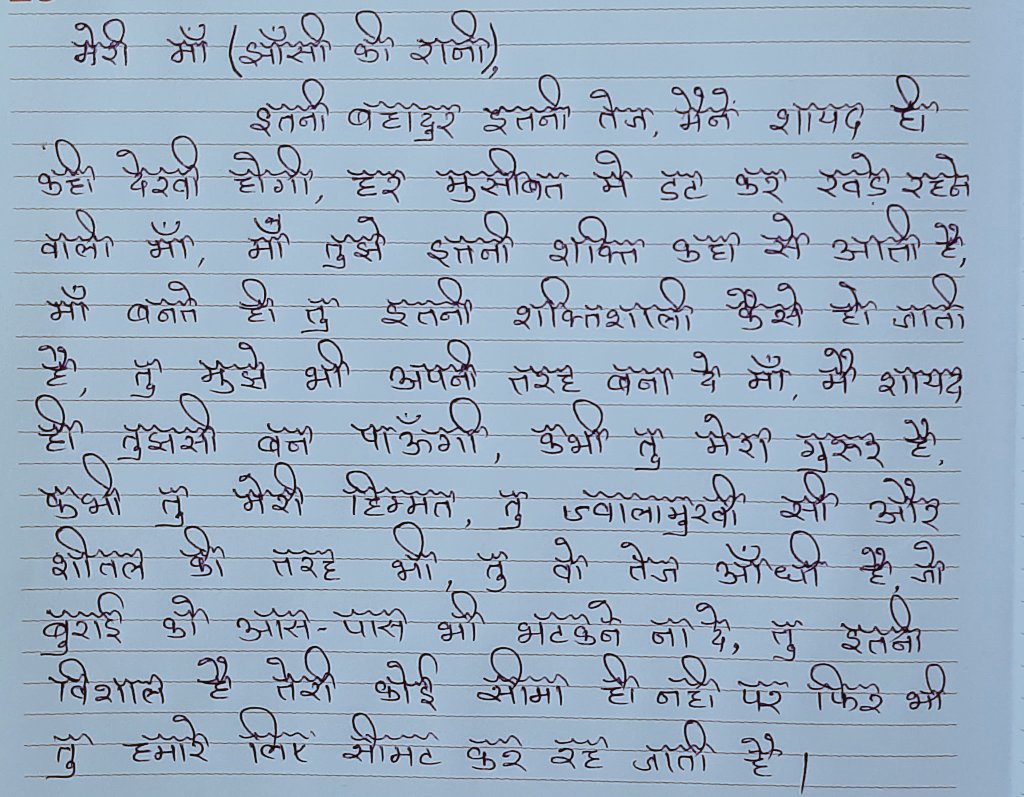 मेरी माँ (झाँसी की रानी),
इतनी बहादुर इतनी तेज, मैनें शायद ही
कही देखी होगी, हर मुसीबत मे डट कर खड़े रहने
वाली माँ, माँ तुझे इतनी शक्ति कहा से आती है,
माँ बनते ही तु इतनी शक्तिशाली कैसे हो जाती
है, तु मुझे भी अपनी तरह बना दे माँ, मै शायद
ही तुझसी बन पाऊँगी, कभी तु मेरा गुरूर है,
कभी तु मेरी हिम्मत, तु ज्वालामुखी सी और
शीतल की तरह भी, तु वो तेज आँधी है, जो
बुराई को आस-पास भी भटकने ना दे, तु इतनी
विशाल है तेरी कोई सीमा ही नही पर फिर भी
तु हमारे लिए सीमट कर रह जाती है।